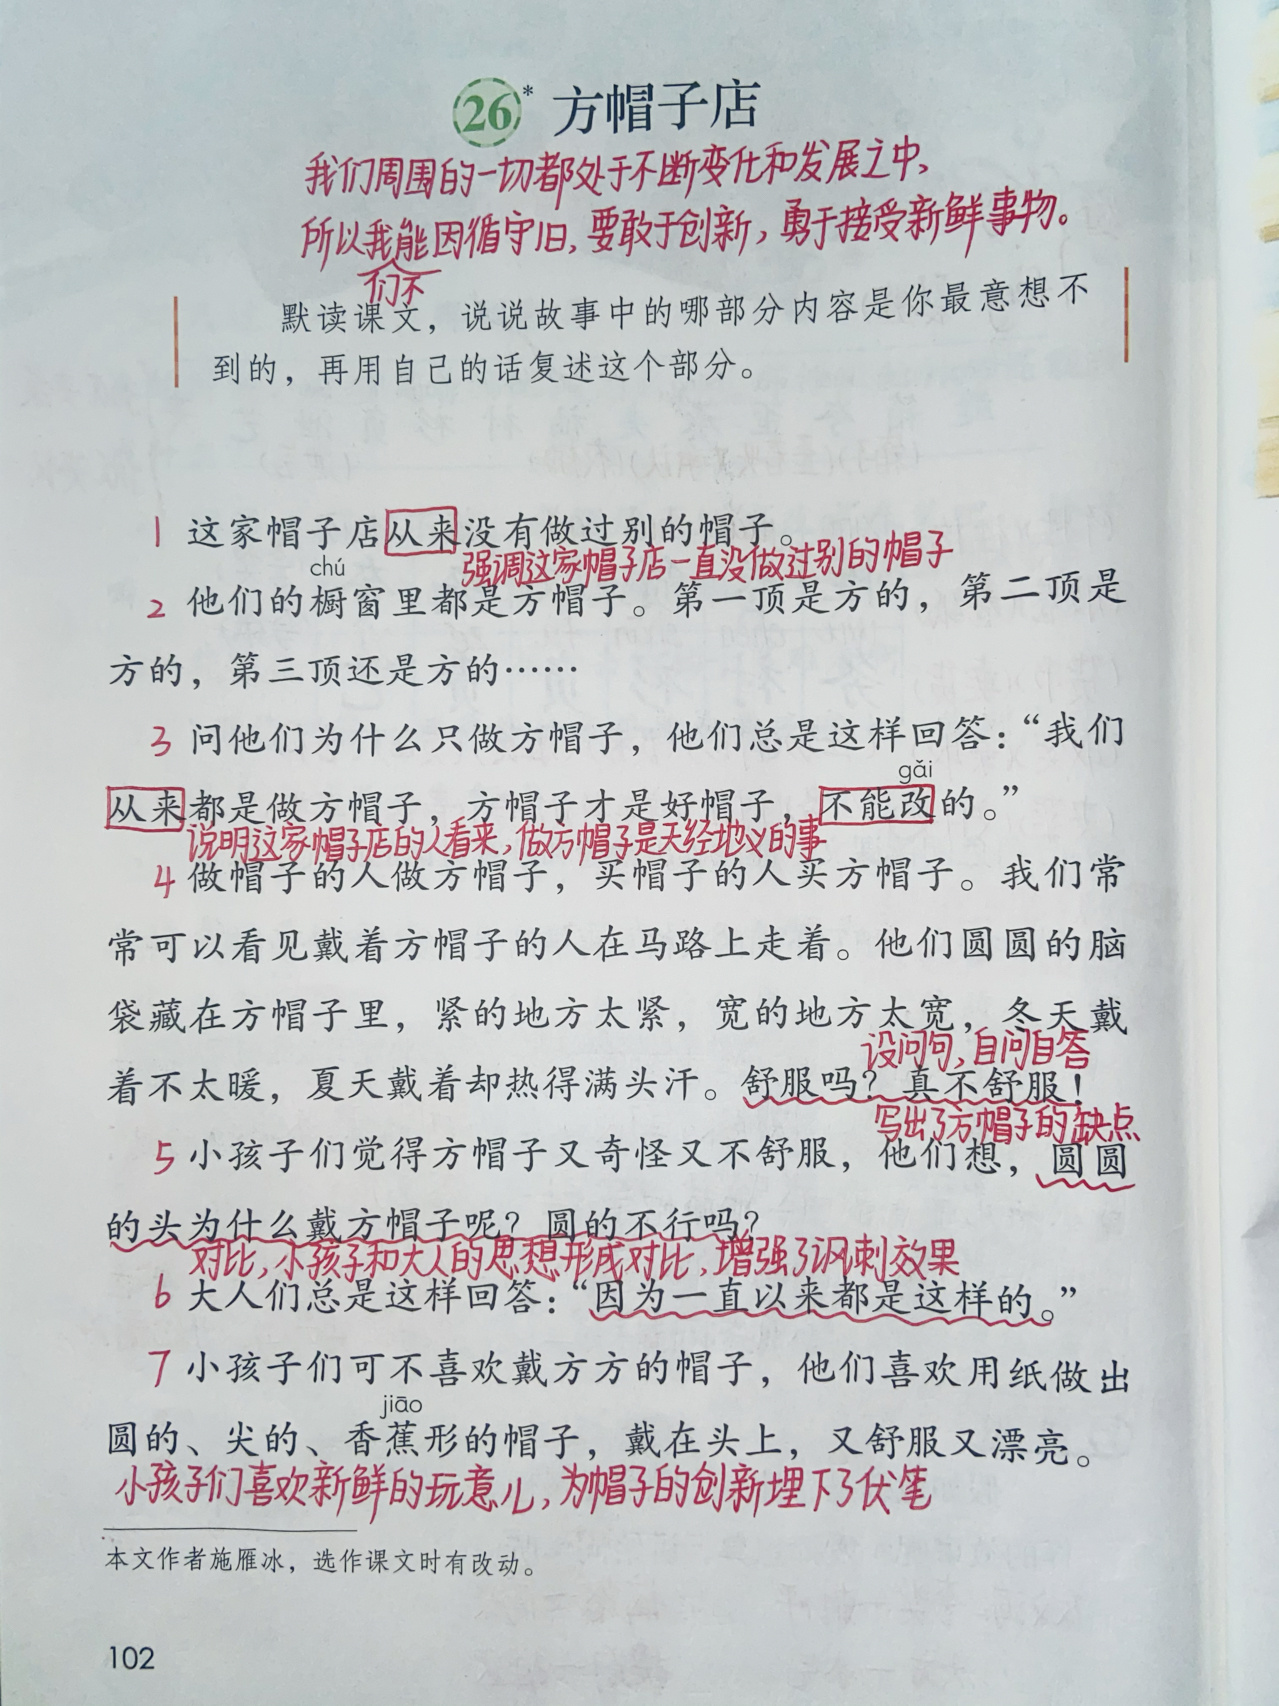 26* 方帽子店
我们周围的一切都处于不断变化和发展之中，
所以我能因循守旧，要敢于创新，勇于接受新鲜事物。
们不
默读课文，说说故事中的哪部分内容是你最意想不
到的，再用自己的话复述这个部分。
1 这家帽子店从来没有做过别的帽子。
强调这家帽子店一直没做过别的帽子
chú
2 他们的橱窗里都是方帽子。第一顶是方的，第二顶是
方的，第三顶还是方的……
3 问他们为什么只做方帽子，他们总是这样回答：“我们
gǎi
从来都是做方帽子，方帽子才是好帽子，不能改的。”
说明这家帽子店的人看来，做方帽子是天经地义的事
4 做帽子的人做方帽子，买帽子的人买方帽子。我们常
常可以看见戴着方帽子的人在马路上走着。他们圆圆的脑
袋藏在方帽子里，紧的地方太紧，宽的地方太宽，冬天戴
设问句，自问自答
着不太暖，夏天戴着却热得满头汗。舒服吗？真不舒服！
写出了方帽子的缺点
5 小孩子们觉得方帽子又奇怪又不舒服，他们想，圆圆
的头为什么戴方帽子呢？圆的不行吗？
对比，小孩子和大人的思想形成对比，增强了讽刺效果
6 大人们总是这样回答：“因为一直以来都是这样的。”
7 小孩子们可不喜欢戴方方的帽子，他们喜欢用纸做出
jiāo
圆的、尖的、香蕉形的帽子，戴在头上，又舒服又漂亮。
小孩子们喜欢新鲜的玩意儿，为帽子的创新埋下了伏笔
本文作者施雁冰，选作课文时有改动。
102